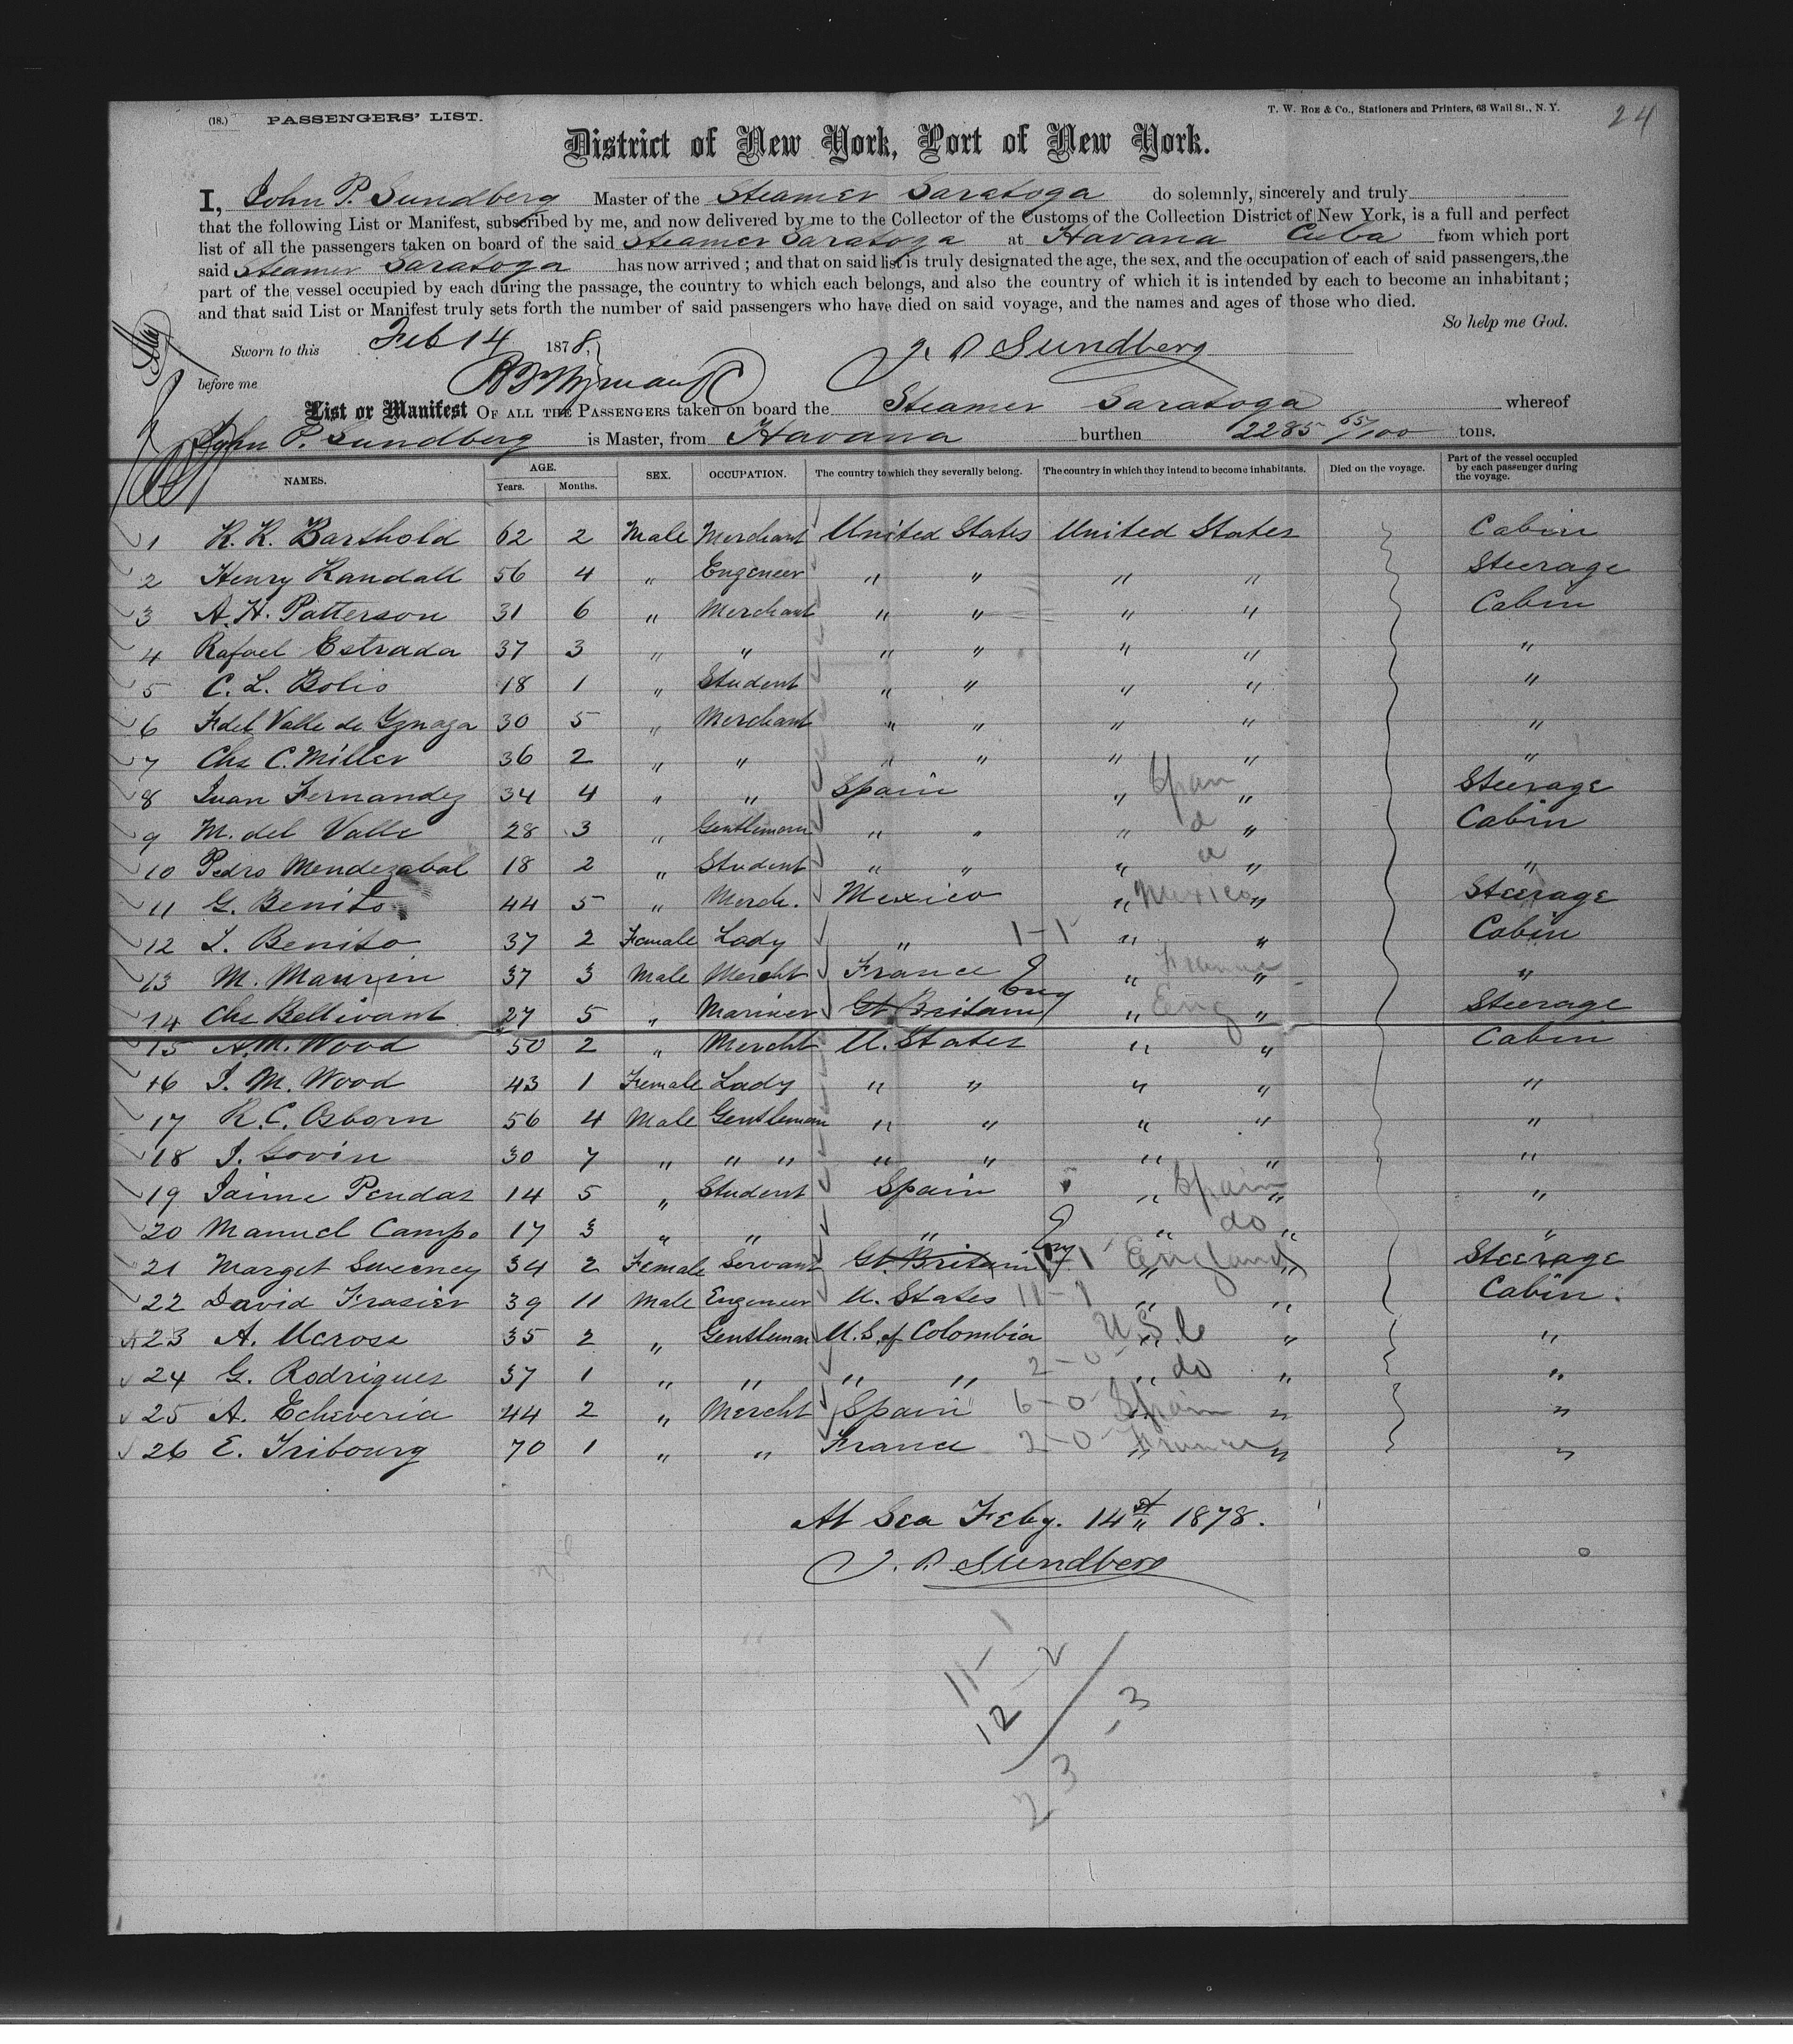 (18.) PASSENGERS' LIST.
T. W. Roe & Co., Stationers and Printers, 63 Wall St., N. Y.
24
District of New York, Port of New York.
I, John P. Sundberg Master of the Steamer Saratoga do solemnly, sincerely and truly
that the following List or Manifest, subscribed by me, and now delivered by me to the Collector of the Customs of the Collection District of New York, is a full and perfect
list of all the passengers taken on board of the said Steamer Saratoga at Havana Cuba from which port
said Steamer Saratoga has now arrived; and that on said list is truly designated the age, the sex, and the occupation of each of said passengers, the
part of the vessel occupied by each during the passage, the country to which each belongs, and also the country of which it is intended by each to become an inhabitant;
and that said List or Manifest truly sets forth the number of said passengers who have died on said voyage, and the names and ages of those who died.
So help me God.
Sworn to this Feb 14 1878, J. P. Sundberg
before me
List or Manifest OF ALL THE PASSENGERS taken on board the Steamer Saratoga whereof
John P. Sundberg is Master, from Havana burthen 2285 65/100 tons.
NAMES. AGE. Years. Months. SEX. OCCUPATION. The country to which they severally belong. The country in which they intend to become inhabitants. Died on the voyage. Part of the vessel occupied by each passenger during the voyage.
1 K. K. Barthold 62 2 Male Merchant United States United States Cabin
2 Henry Randall 56 4 " Engeneer " " " " Steerage
3 A. H. Patterson 31 6 " Merchant " " " " Cabin
4 Rafael Estrada 37 3 " " " " " " "
5 C. L. Bolio 18 1 " Student " " " " "
6 F del Valle de Yznaga 30 5 " Merchant " " " " "
7 Chs C. Miller 36 2 " " " " " " "
8 Juan Fernandez 34 4 " " Spain " Spain " Steerage
9 M. del Valle 28 3 " Gentleman " " " d " Cabin
10 Pedro Mendezabal 18 2 " Student " " " d " "
11 G. Benito 44 5 " Merch. Mexico " Mexico " Steerage
12 I. Benito 37 2 Female Lady " 1-1 " " Cabin
13 M. Maurin 37 3 Male Mercht France " France " "
14 Chs Bellivant 27 5 " Mariner Gt Britain Eng " Eng " Steerage
15 A. M. Wood 50 2 " Mercht U. States " " Cabin
16 I. M. Wood 43 1 Female Lady " " " " "
17 R. C. Osborn 56 4 Male Gentleman " " " " "
18 J. Govin 30 7 " " " " " " " "
19 Jaime Pendas 14 5 " Student Spain " Spain " "
20 Manuel Campo 17 3 " " " " do " "
21 Marget Sweeney 34 2 Female Servant Gt. Britain Eng 1 " England " Steerage
22 David Frasier 39 11 Male Engeneer U. States 11-1 " " Cabin.
23 A. Ucrose 35 2 " Gentleman U. S. of Colombia " U S C " "
24 G. Rodrigues 37 1 " " " " 2-0 " do " "
25 A. Echeveria 44 2 " Mercht Spain 6-0 " Spain " "
26 E. Fribourg 70 1 " " France 2-0 " France " "
At Sea Feby. 14th 1878.
J. P. Sundberg
11-1
12-2
23-3